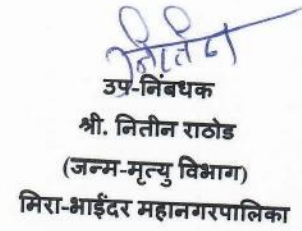 नितिन
उप-निंबधक
श्री. नितीन राठोड
(जन्म-मृत्यु विभाग)
मिरा-भाईंदर महानगरपालिका